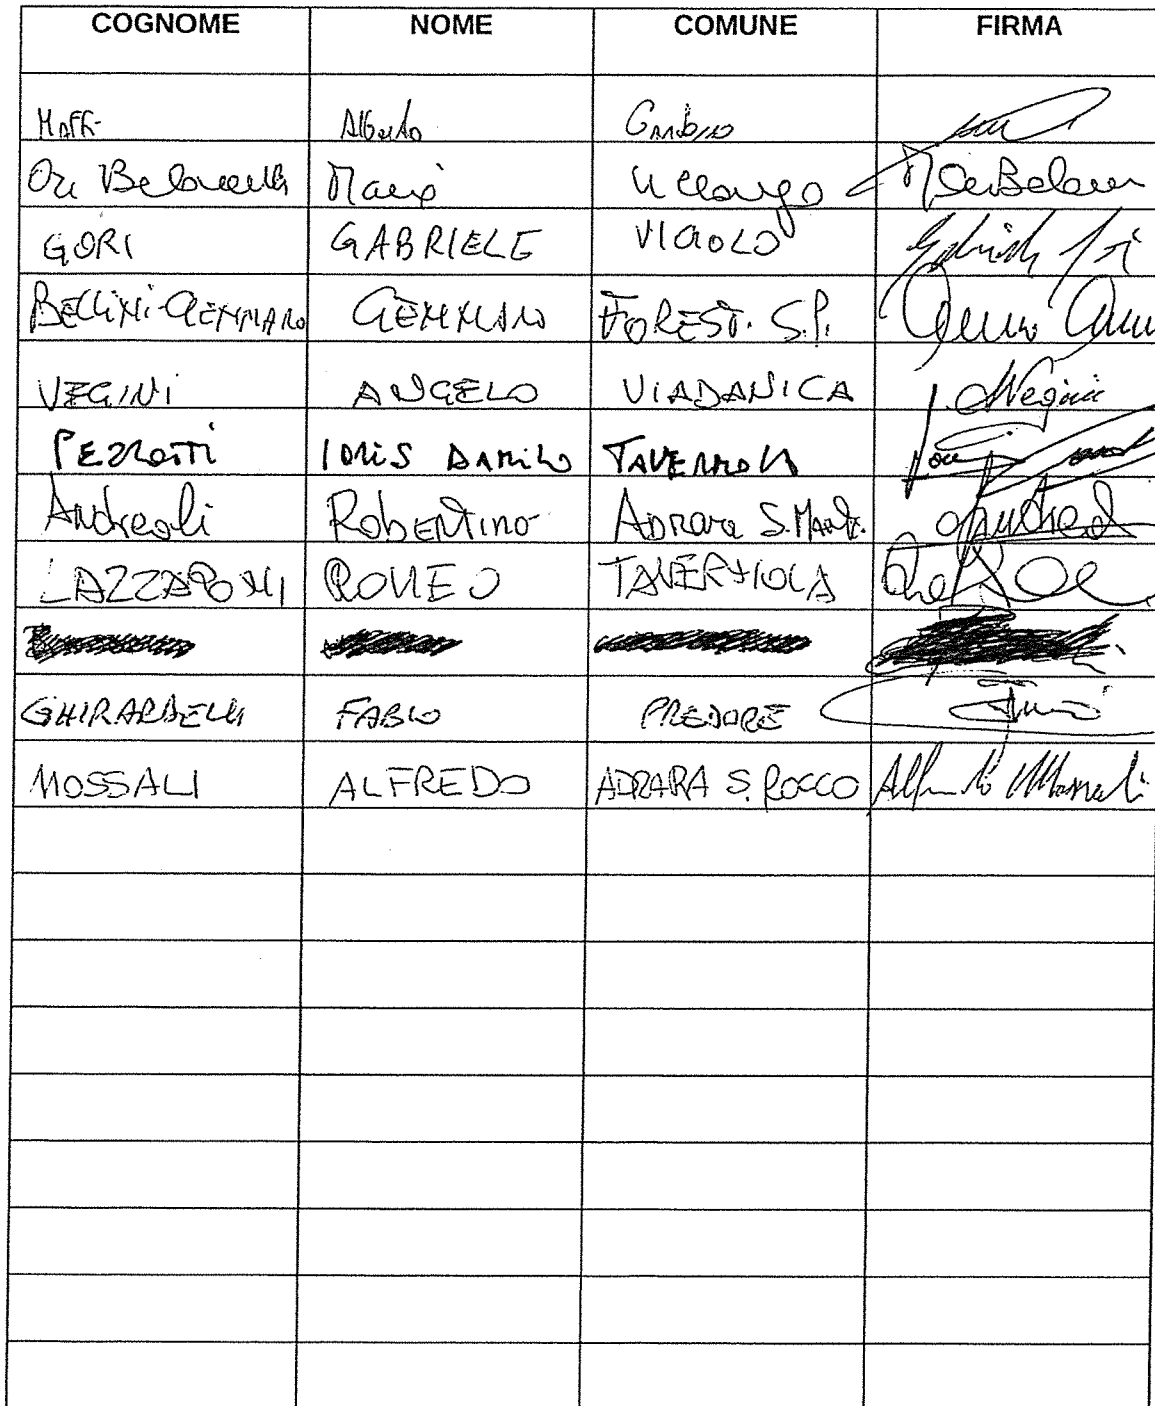 COGNOME NOME COMUNE FIRMA
Maffi Alberto Gandosso
Belometti Maria
GORI GABRIELE VIGOLO Gabriele Gori
BELLINI GENNARO GENNARO FOREST. S.P.
VEGINI ANGELO VIADANICA AVegini
PEZZOTTI IORIS DANILO TAVERNOLA
Andreoli Robertino ADRARA S.Mart.
LAZZARONI ROMEO TAVERNOLA
GHIRARDELLI FABIO PREDORE
MOSSALI ALFREDO ADRARA S. ROCCO Alfredo Mossali